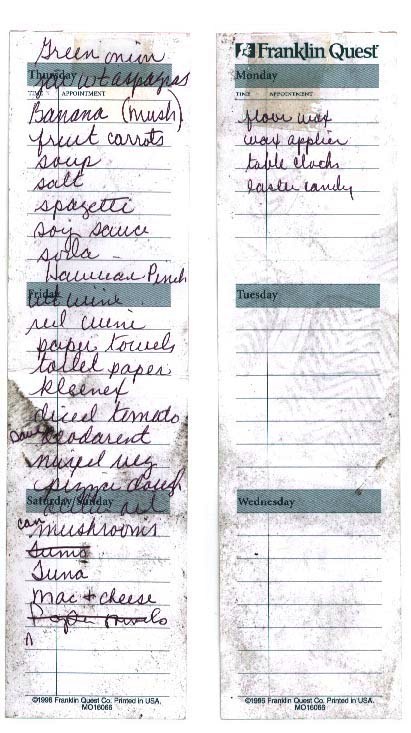 Green onion
Thursday
asparagas
TIME APPOINTMENT
Banana (mush)
fruit carrots
soup
salt
spagetti
soy sauce
soda -
Hawiean Punch
Friday
wt wine
red wine
paper towels
toilet paper
kleenex
diced tomato
deodarent
mixed veg
pizza dough
Saturday/Sunday
can mushrooms
Tums
Tuna
mac + cheese
Paper towels
©1996 Franklin Quest Co. Printed in USA.
MO16066
Franklin Quest
Monday
TIME APPOINTMENT
floor wax
wax applier
table clocks
easter candy
Tuesday
Wednesday
©1996 Franklin Quest Co. Printed in USA.
MO16066